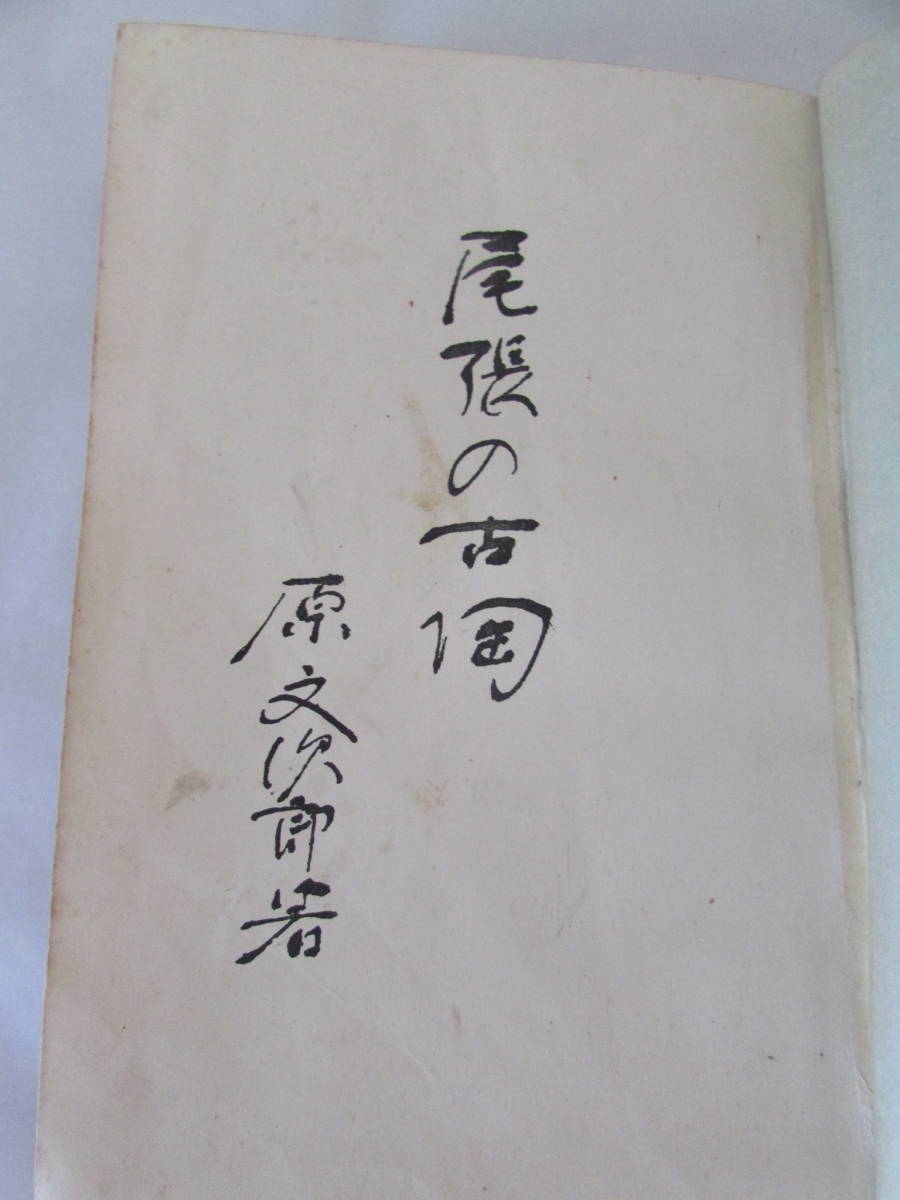 尾張の古陶
原文次郎著